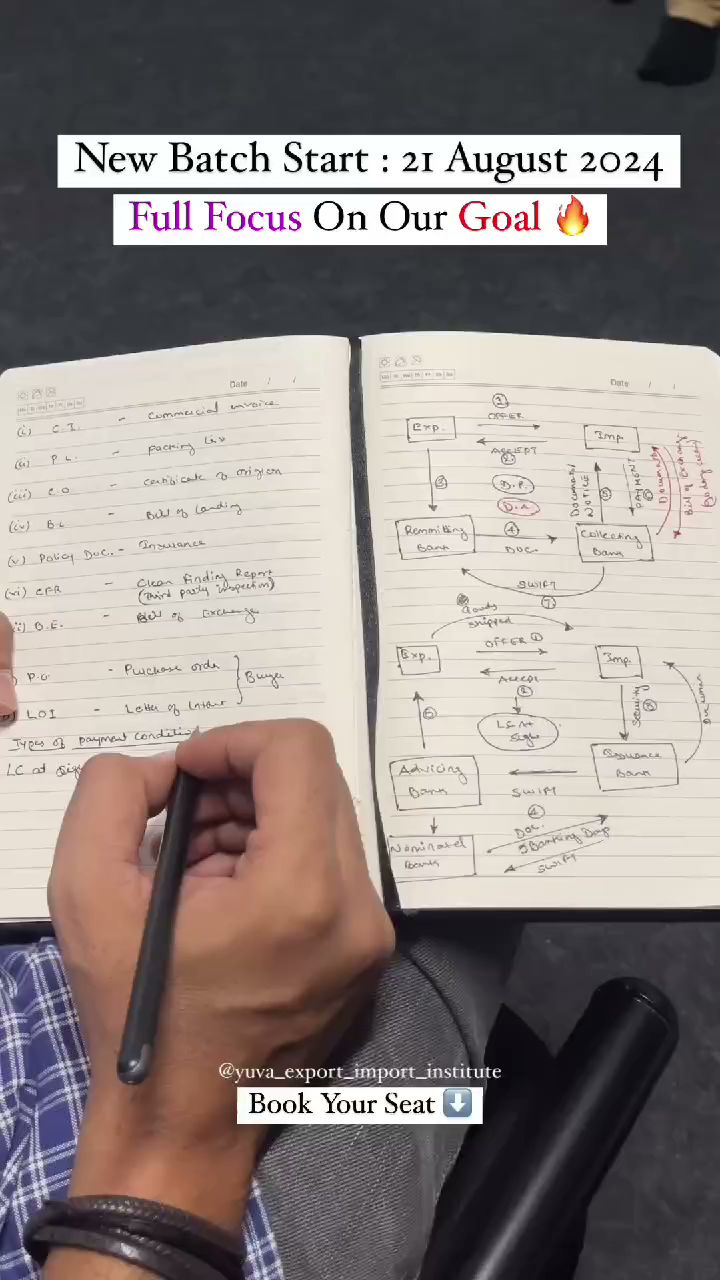 New Batch Start : 21 August 2024
Full Focus On Our Goal 🔥
Date / /
(i) C.I. - Commercial invoice
(ii) P.L. - packing list
(iii) C.O - Certificate of origion
(iv) BL - Bill of Landing
(v) Policy Doc. - Insurance
(vi) CFR - Clean Finding Report
(Third party inspection)
B.E. - Bill of Exchange
P.O - Purchase order
Buyer
LOI - Letter of Intent
Types of payment condition
LC at sig
Date / /
①
Exp. OFFER Imp
ACCEPT
②
③
D.P.
D.A.
Document
NOTICE
⑤
PAYMENT
⑥
Documents
Bill of Exchange
Remmiting
Bank
④
DOC.
Collecting
Bank
SWIFT
⑦
Goods
shipped
Exp. OFFER ① Imp.
Accept
②
Security
③
Document
⑤
LC At
Sight
Advicing
Bank
SWIFT
④
Issuance
Bank
Nominated
Bank
Doc.
5 Banking Days
SWIFT
@yuva_export_import_institute
Book Your Seat ⬇️